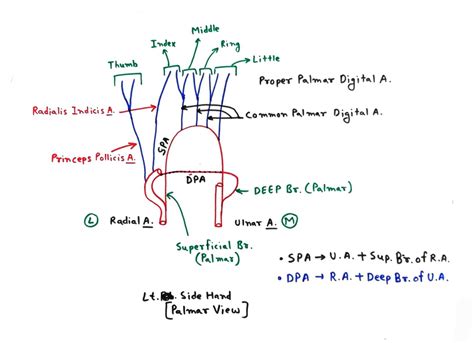 Middle
Index
Ring
Thumb
Little
Proper Palmar Digital A.
Radialis Indicis A.
Common Palmar Digital A.
SPA
Princeps Pollicis A.
DPA
DEEP Br. (Palmar)
L Radial A.
Ulnar A. M
Superficial Br.
(Palmar)
• SPA → U.A. + Sup. Br. of R.A.
• DPA → R.A. + Deep Br. of U.A.
Lt. Side Hand
[Palmar View]